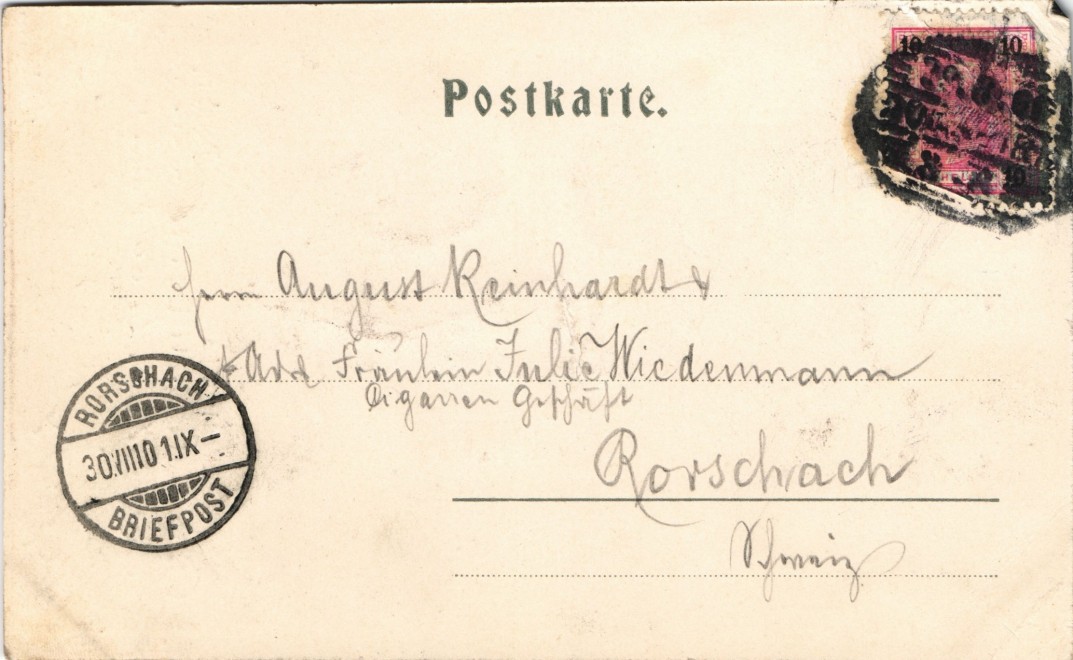 Postkarte.
10 10
10
Herrn August Reinhardt &
Adr Fräulein Julie Wiedenmann
Cigarren Geschäft
Rorschach
Schweiz
RORSCHACH
30.VIII.10 1.IX–
BRIEFPOST